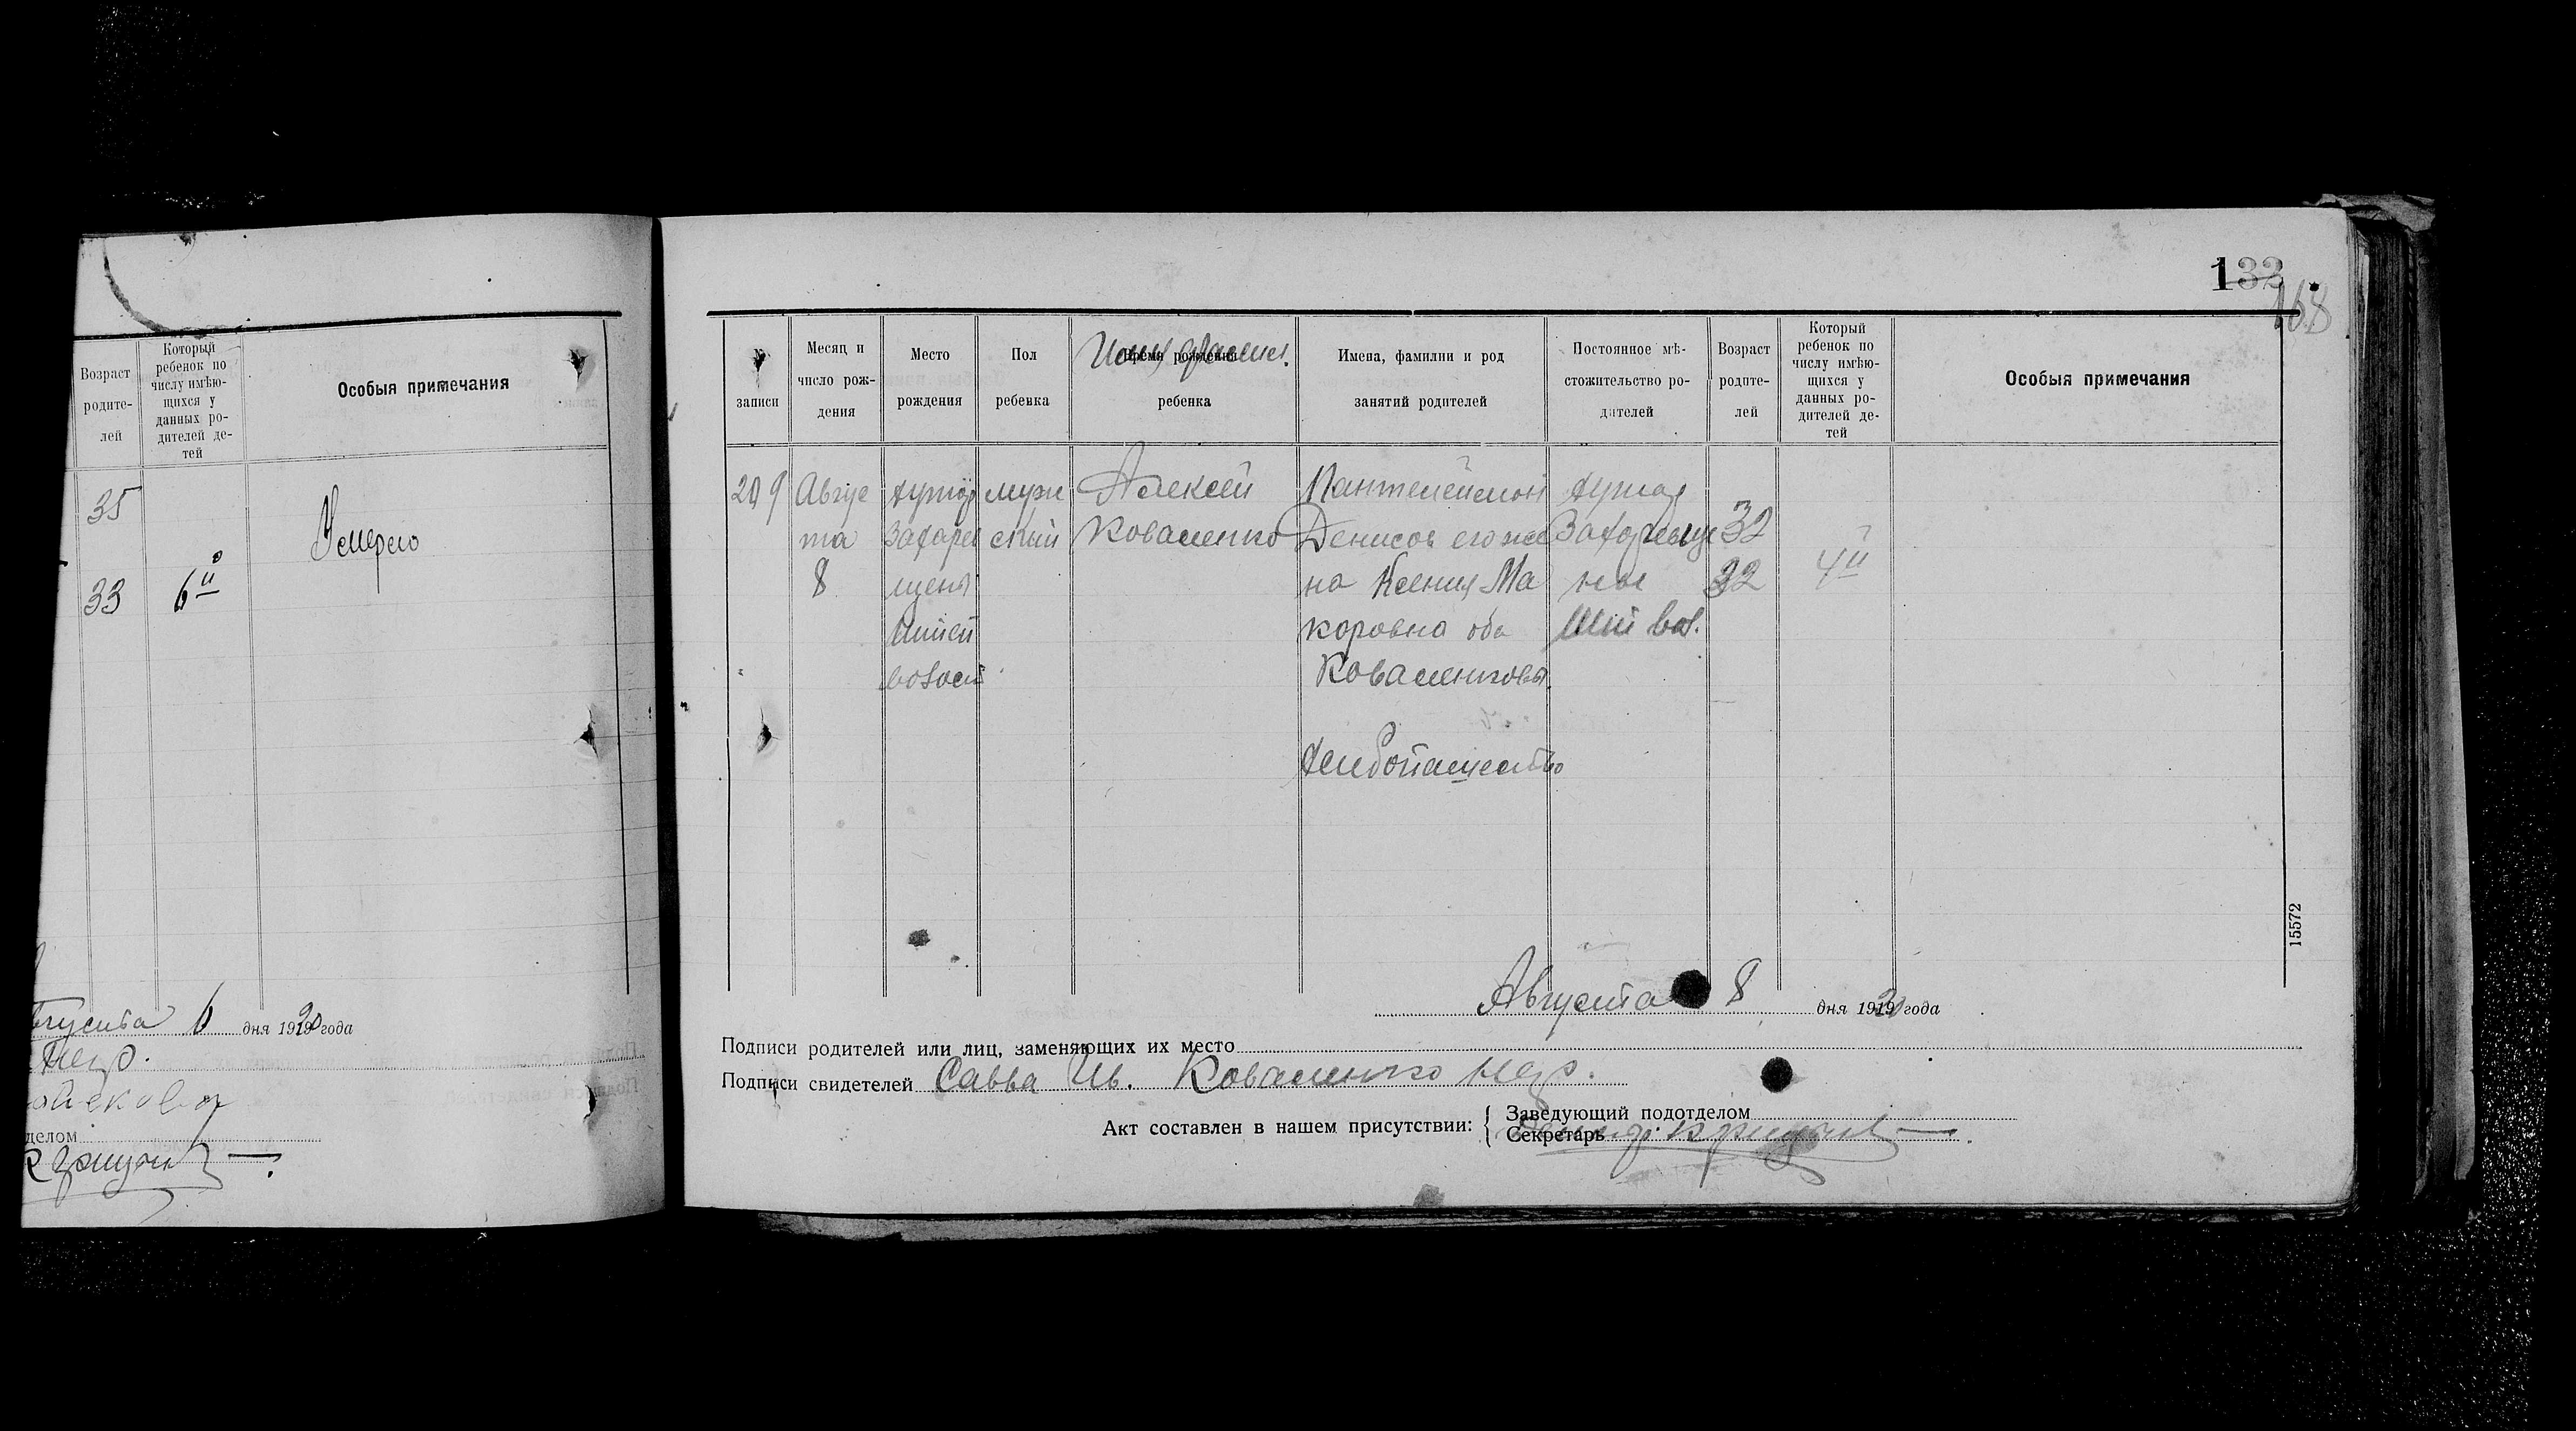 Возраст родите-лей
Который ребенок по числу имѣю-щихся у данных ро-дителей де-тей
Особыя примечания
35
33
6й
Умерло
6 дня 1920 года
Негр.
делом
132
168
№ записи
Месяц и число рож-дения
Место рождения
Пол ребенка
Время рождения ребенка
Имя, фамил.
Имена, фамилии и род занятий родителей
Постоянное мѣ-стожительство ро-дителей
Возраст родите-лей
Который ребенок по числу имѣю-щихся у данных ро-дителей де-тей
Особыя примечания
209
Авгус
та
8
хутор
мужской
Алексей
Коваленко
Пантелеймон
Денисов его же
на Ксения Ма
коровна оба
Коваленковы
хлебопашество
хутор
32
32
4й
15572
Августа 8 дня 1920 года
Подписи родителей или лиц, заменяющих их место
Подписи свидетелей Савва Ив. Коваленко негр.
Акт составлен в нашем присутствии:
Заведующий подотделом
Секретарь